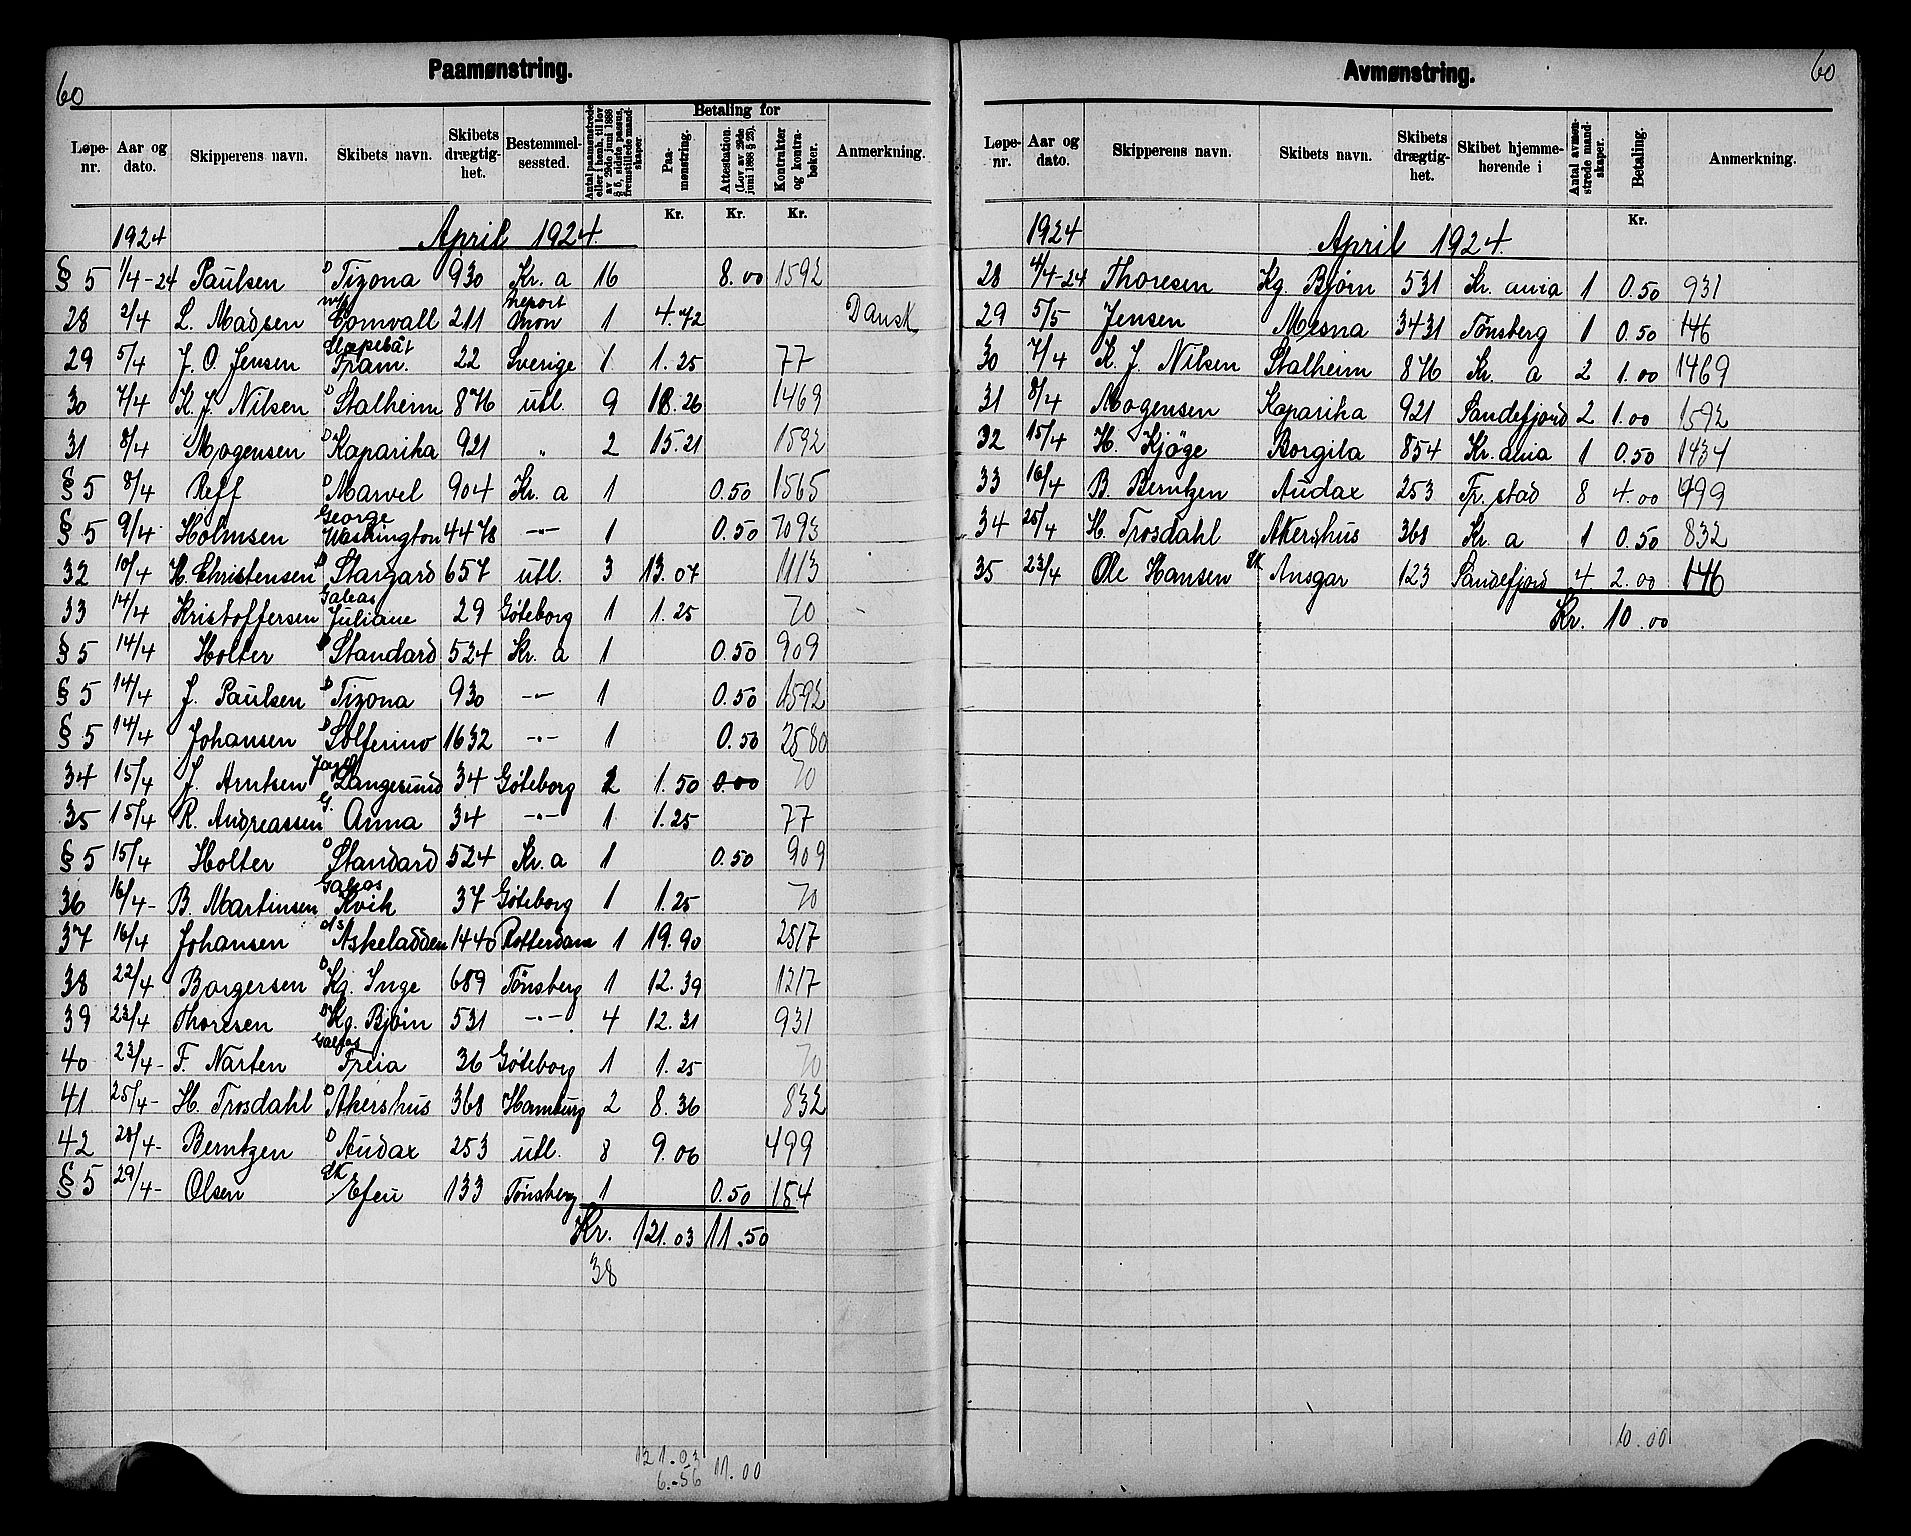 60
Paamønstring.
Løpe-nr. Aar og dato. Skipperens navn. Skibets navn. Skibets drægtig-het. Bestemmel-sessted. Antal paamønstrede eller i henh. til lov av 29de juni 1888 § 5, sidste passus, fremstillede mand-skaper. Betaling for Paa-mønstring. Attestation. (Lov av 29de juni 1888 § 25). Kontrakter og kontra-bøker. Anmerkning.
Kr. Kr. Kr.
1924 April 1924.
§ 5 1/4-24 Paulsen D Tizona 930 Kr. a 16 8.00 1592
28 2/4 L. Madsen Cornvall 211 1 4.72 Dansk
29 5/4 J. O. Jensen Slæpebåt Fram. 22 Sverige 1 1.25 77
30 7/4 K. J. Nilsen D Stalheim 876 utl. 9 18.26 1469
31 8/4 Mogensen D Kaparika 921 " 2 15.21 1592
§ 5 8/4 Reff D Marvel 904 Kr. a 1 0.50 1565
§ 5 9/4 Holmsen George Washington 4478 -"- 1 0.50 7093
32 10/4 H. Christensen D Stargard 657 utl. 3 13.07 1113
33 14/4 Kristoffersen Galeas Juliane 29 Göteborg 1 1.25 70
§ 5 14/4 Holter D Standard 524 Kr. a 1 0.50 909
§ 5 14/4 J. Paulsen D Tizona 930 -"- 1 0.50 1592
§ 5 14/4 Johansen D Solferino 1632 -"- 1 0.50 2580
34 15/4 J. Arntsen Langesund 34 Göteborg 2 1.50 0.00 70
35 15/4 R. Andreassen G. Anna 34 -"- 1 1.25 77
§ 5 15/4 Holter D Standard 524 Kr. a 1 0.50 909
36 16/4- B. Martinsen Galeas Kvik 37 Göteborg 1 1.25 70
37 16/4 Johansen Askeladden 1440 Rotterdam 1 19.90 2517
38 22/4- Borgersen D Kg. Inge 689 Tønsberg 1 12.39 1217
39 23/4 Thoresen D Kg. Bjørn 531 -"- 4 12.31 931
40 23/4- F. Narten Galeas Freia 36 Göteborg 1 1.25 70
41 25/4- H. Trosdahl D Akershus 368 Hamburg 2 8.36 832
42 28/4- Berntzen D Audax 253 utl. 8 9.06 499
§ 5 29/4- Olsen Sk Efeu 133 Tønsberg 1 0.50 154
Kr. 121.03 11.50
38
121.03
6.-56 11.00
Avmønstring. 60
Løpe-nr. Aar og dato. Skipperens navn. Skibets navn. Skibets drægtig-het. Skibet hjemme-hørende i Antal avmøn-strede mand-skaper. Betaling. Anmerkning.
Kr.
1924 April 1924.
28 4/4-24 Thoresen Kg. Bjørn 531 Kr. ania 1 0.50 931
29 5/5 Jensen Mesna 3431 Tønsberg 1 0.50 146
30 7/4 K. J. Nilsen Stalheim 876 Kr. a 2 1.00 1469
31 8/4 Mogensen Kaparika 921 Sandefjord 2 1.00 1592
32 15/4 H. Kjøge Borgila 854 Kr. ania 1 0.50 1434
33 16/4 B. Berntzen Audax 253 Fr. stad 8 4.00 499
34 25/4 H. Trosdahl Akershus 368 Kr. a 1 0.50 832
35 23/4 Ole Hansen Sk Ansgar 123 Sandefjord 4 2.00 146
Kr. 10.00
10.00